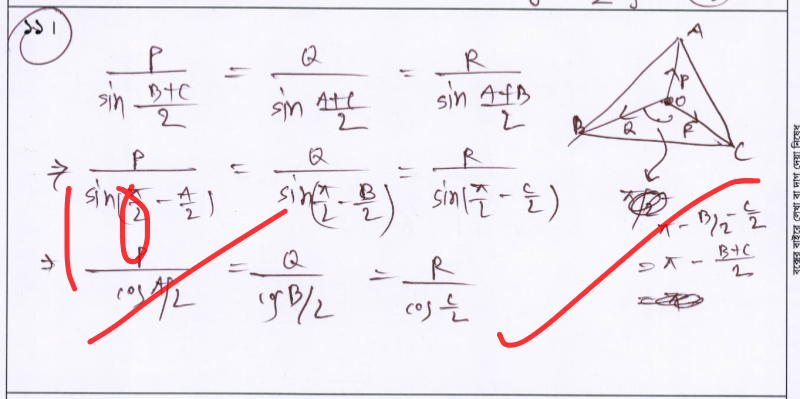 ১১।
P / sin (B+C)/2 = Q / sin (A+C)/2 = R / sin (A+B)/2
⇒ P / sin(π/2 - A/2) = Q / sin(π/2 - B/2) = R / sin(π/2 - C/2)
⇒ P / cos A/2 = Q / cos B/2 = R / cos C/2
A
P
O
B Q R C
π - B/2 - C/2
= π - (B+C)/2
=